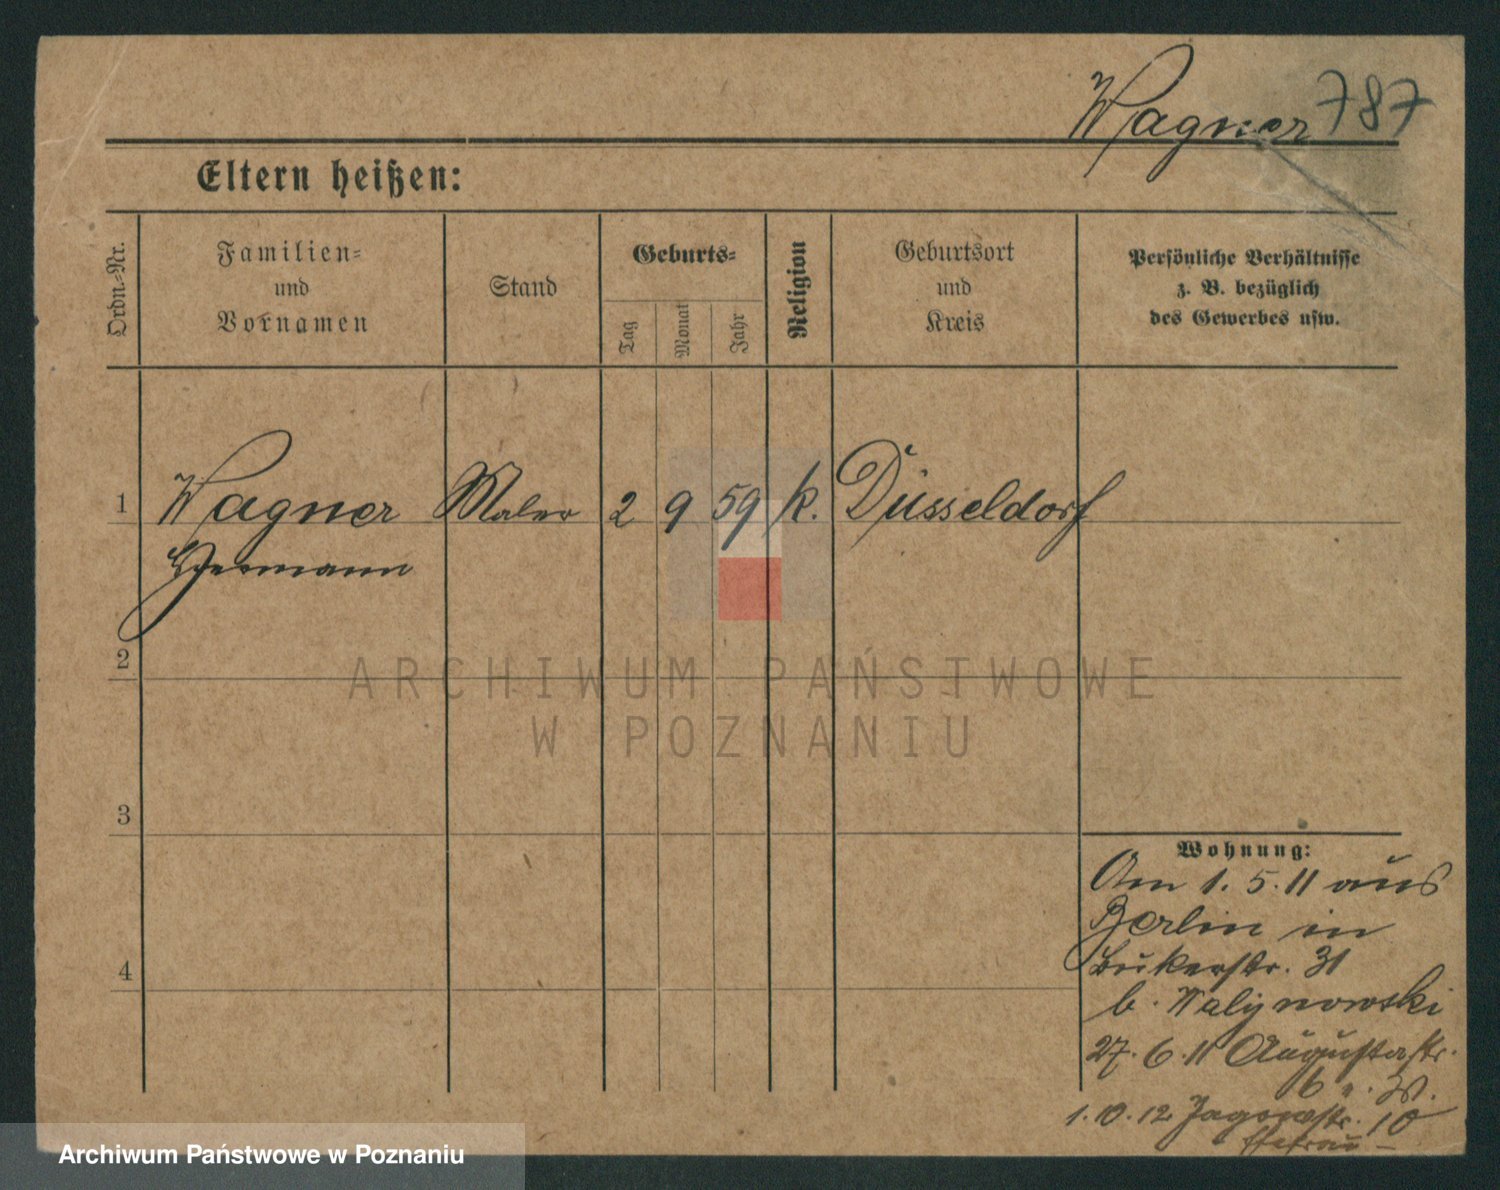 Wagner 787
Eltern heißen:
Ordn.-Nr.
Familien-
und
Vornamen
Stand
Geburts-
Tag
Monat
Jahr
Religion
Geburtsort
und
Kreis
Persönliche Verhältnisse
z. B. bezüglich
des Gewerbes usw.
1 Wagner Maler 2 9 59 k. Düsseldorf
Hermann
2
3
4
ARCHIWUM PAŃSTWOWE
W POZNANIU
Wohnung:
Am 1. 5. 11 aus
Berlin in
Bukerstr. 31
b.
27. 6. 11 Augustastr.
1. 10. 12 10
Archiwum Państwowe w Poznaniu